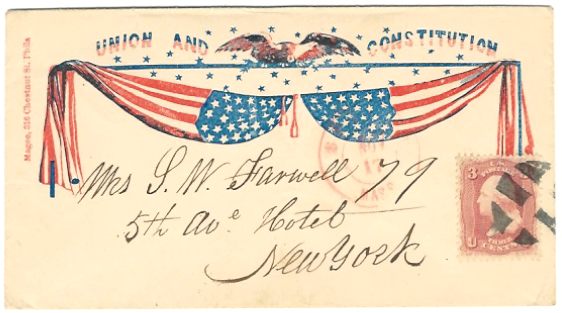 UNION AND CONSTITUTION
Magee, 316 Chestnut St. Phila
NOV
17
MASS
Mrs S. W. Farwell 79
5th Ave Hotel
New York
3
U.S. POSTAGE
THREE
CENTS